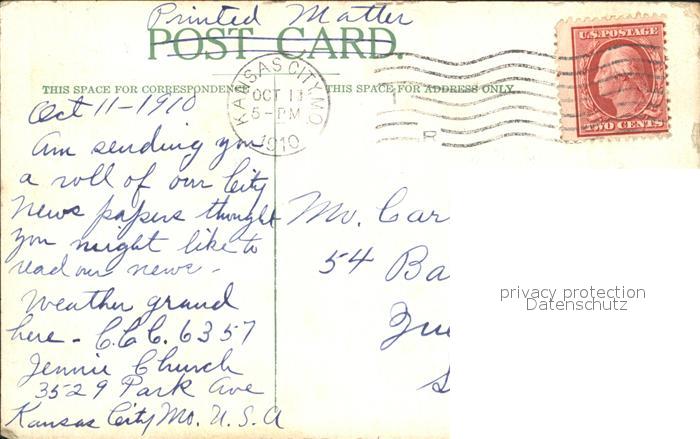 Printed Matter
POST CARD.
THIS SPACE FOR CORRESPONDEN
THIS SPACE FOR ADDRESS ONLY.
KANSAS CITY, MO.
OCT 11
5-PM
1910
1
B
U.S. POSTAGE
TWO CENTS
Oct 11-1910
Am sending you
a roll of our City
News papers thought
you might like to
read our news -
Weather grand
here - C.C.C. 6357
Jennie Church
3529 Park Ave
Kansas City Mo. U.S.A
Mr. Car
54 Ba
privacy protection
Datenschutz